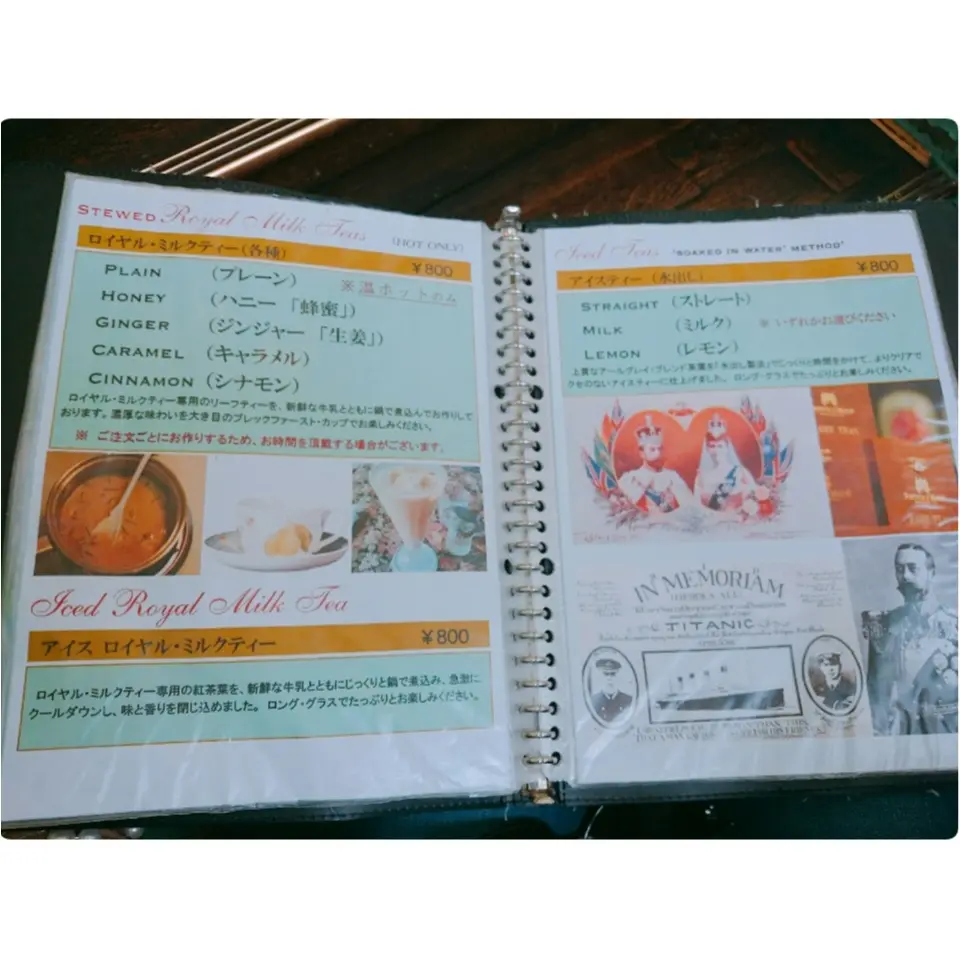 STEWED Royal Milk Teas (HOT ONLY)
ロイヤル・ミルクティー(各種) ¥800
PLAIN (プレーン) ※温ホットのみ
HONEY (ハニー「蜂蜜」)
GINGER (ジンジャー「生姜」)
CARAMEL (キャラメル)
CINNAMON (シナモン)
ロイヤル・ミルクティー専用のリーフティーを、新鮮な牛乳とともに鍋で煮込んでお作りして
おります。濃厚な味わいを大き目のブレックファースト・カップでお楽しみください。
※ ご注文ごとにお作りするため、お時間を頂戴する場合がございます。
Iced Royal Milk Tea
アイス ロイヤル・ミルクティー ¥800
ロイヤル・ミルクティー専用の紅茶葉を、新鮮な牛乳とともにじっくりと鍋で煮込み、急激に
クールダウンし、味と香りを閉じ込めました。ロング・グラスでたっぷりとお楽しみください。
Iced Teas "SOAKED IN WATER" METHOD"
アイスティー (水出し) ¥800
STRAIGHT (ストレート)
MILK (ミルク) ※いずれかお選びください
LEMON (レモン)
上質なアールグレイ・ブレンド茶葉を「水出し製法」でじっくりと時間をかけて、よりクリアで
クセのないアイスティーに仕上げました。ロング・グラスでたっぷりとお楽しみください。
IN MEMORIAM
TITANIC